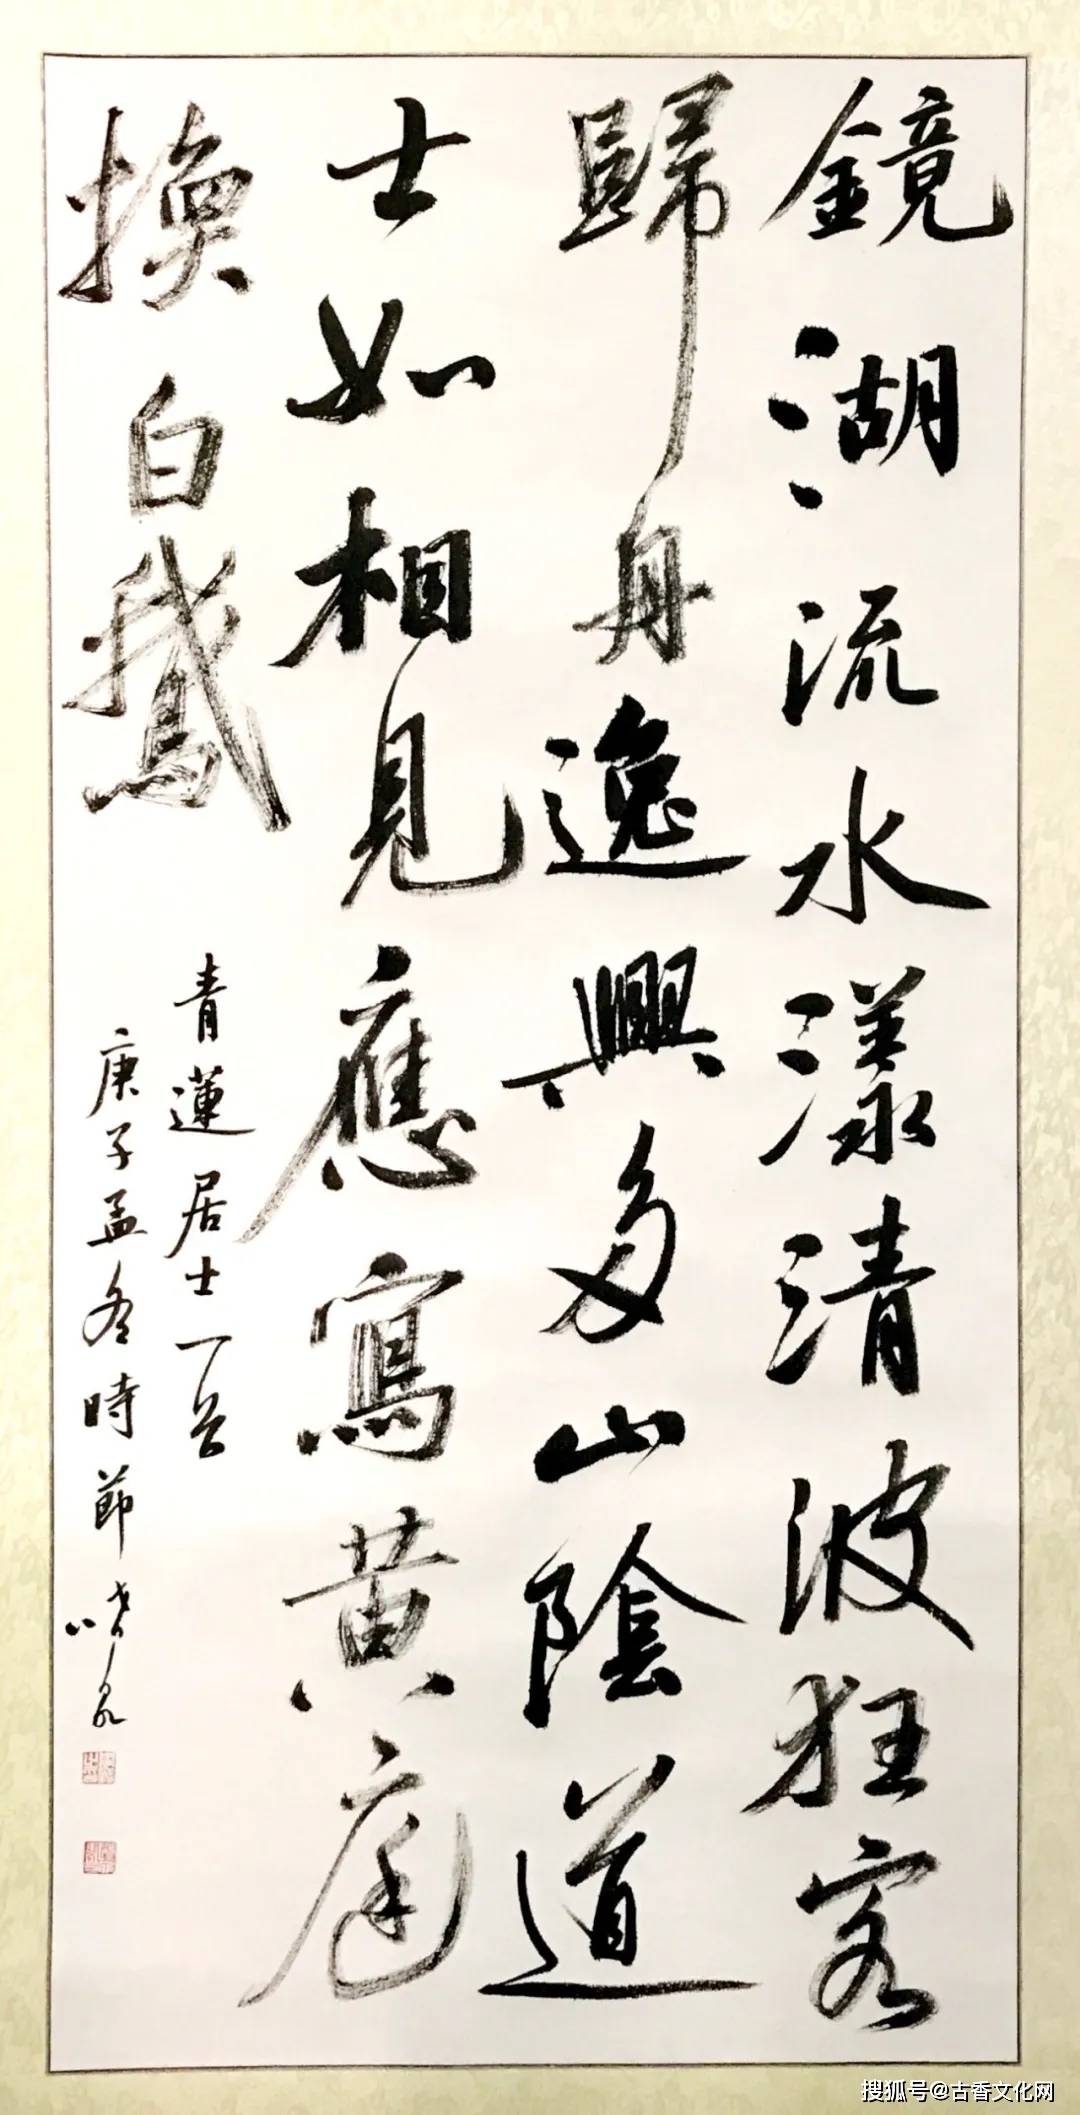 鏡湖流水漾清波狂客
歸舟逸興多山陰道
士如相見應寫黃庭
換白鵝
青蓮居士一首
庚子孟冬時節
搜狐号@古香文化网